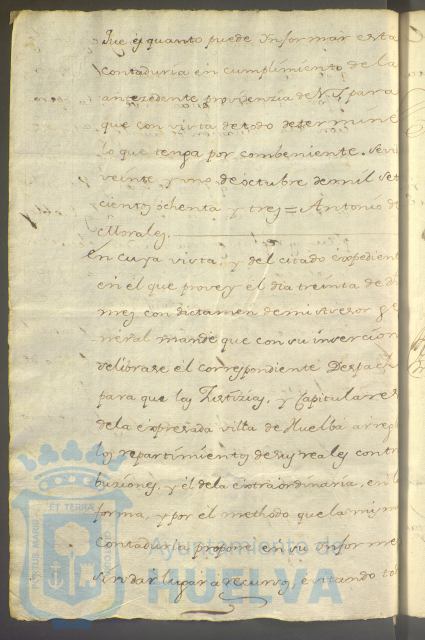 que es quanto puede Informar esta
contaduria en cumplimiento de la
antezedente providenzia de V.S. para
que con vista de todo determine
lo que tenga por combeniente. Sevª
veinte y uno de octubre de mil set
cientos ochenta y tres = Antonio de
Morales.
En cuya vista, y del citado expedient
en el que proveý el dia treinta de dho
mes con dictamen de mi Asesor ge
neral mandé que con su inserción
se librase el correspondiente Despach
para que las Justizias, y Capitulares
de la expresada villa de Huelba arregl
los repartimientos de sus reales contri
buziones, y el de la extraordinaria, en la
forma, y por el methodo que la mism
Contaduria propone en su Informe
sin dar lugar a recursos, evitando to
PORTUS MARIS ET TERRAE CUSTODIA
Ayuntamiento de
HUELVA